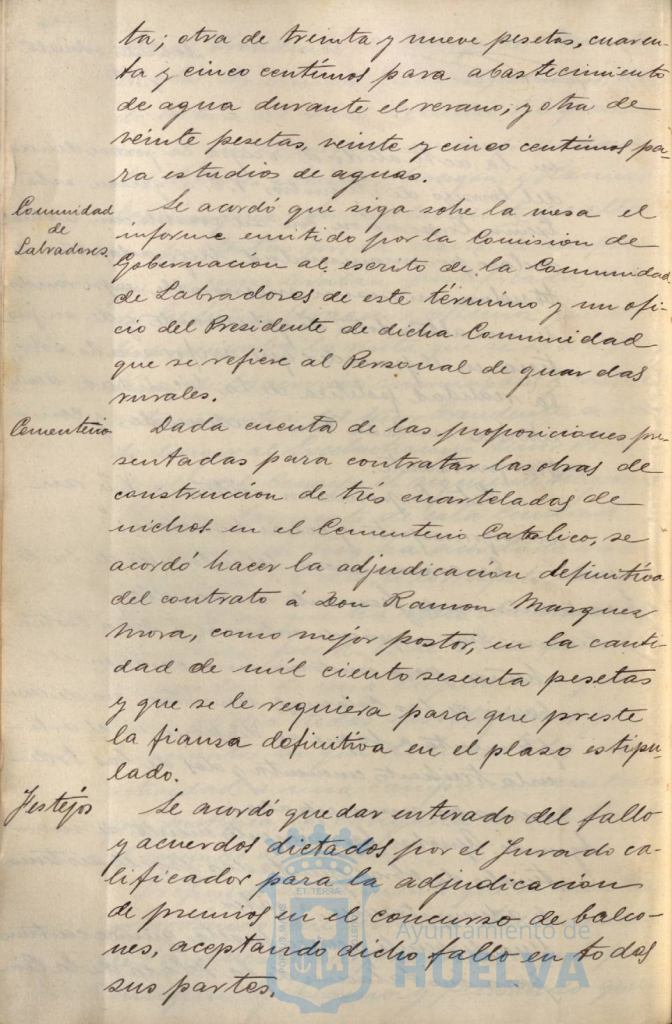 ta; otra de treinta y nueve pesetas, cuaren-
ta y cinco centimos para abastecimiento
de agua durante el verano; y otra de
veinte pesetas, veinte y cinco centimos pa-
ra estudios de aguas.
Comunidad
de
Labradores.
Se acordó que siga sobre la mesa el
informe emitido por la Comision de
Gobernación al escrito de la Comunidad
de Labradores de este término y un ofi-
cio del Presidente de dicha Comunidad
que se refiere al Personal de guardas
rurales.
Cementerio
Dada cuenta de las proposiciones pre-
sentadas para contratar las obras de
construccion de trés cuarteladas de
nichos en el Cementerio Catolico, se
acordó hacer la adjudicación definitiva
del contrato á Don Ramon Marquez
Mora, como mejor postor, en la canti-
dad de mil ciento sesenta pesetas
y que se le requiera para que preste
la fianza definitiva en el plazo estipu-
lado.
Festejos
Se acordó quedar enterado del fallo
y acuerdos dictados por el Jurado ca-
lificador para la adjudicacion
de premios en el concurso de balco-
nes, aceptando dicho fallo en todas
sus partes.
Ayuntamiento de
HUELVA